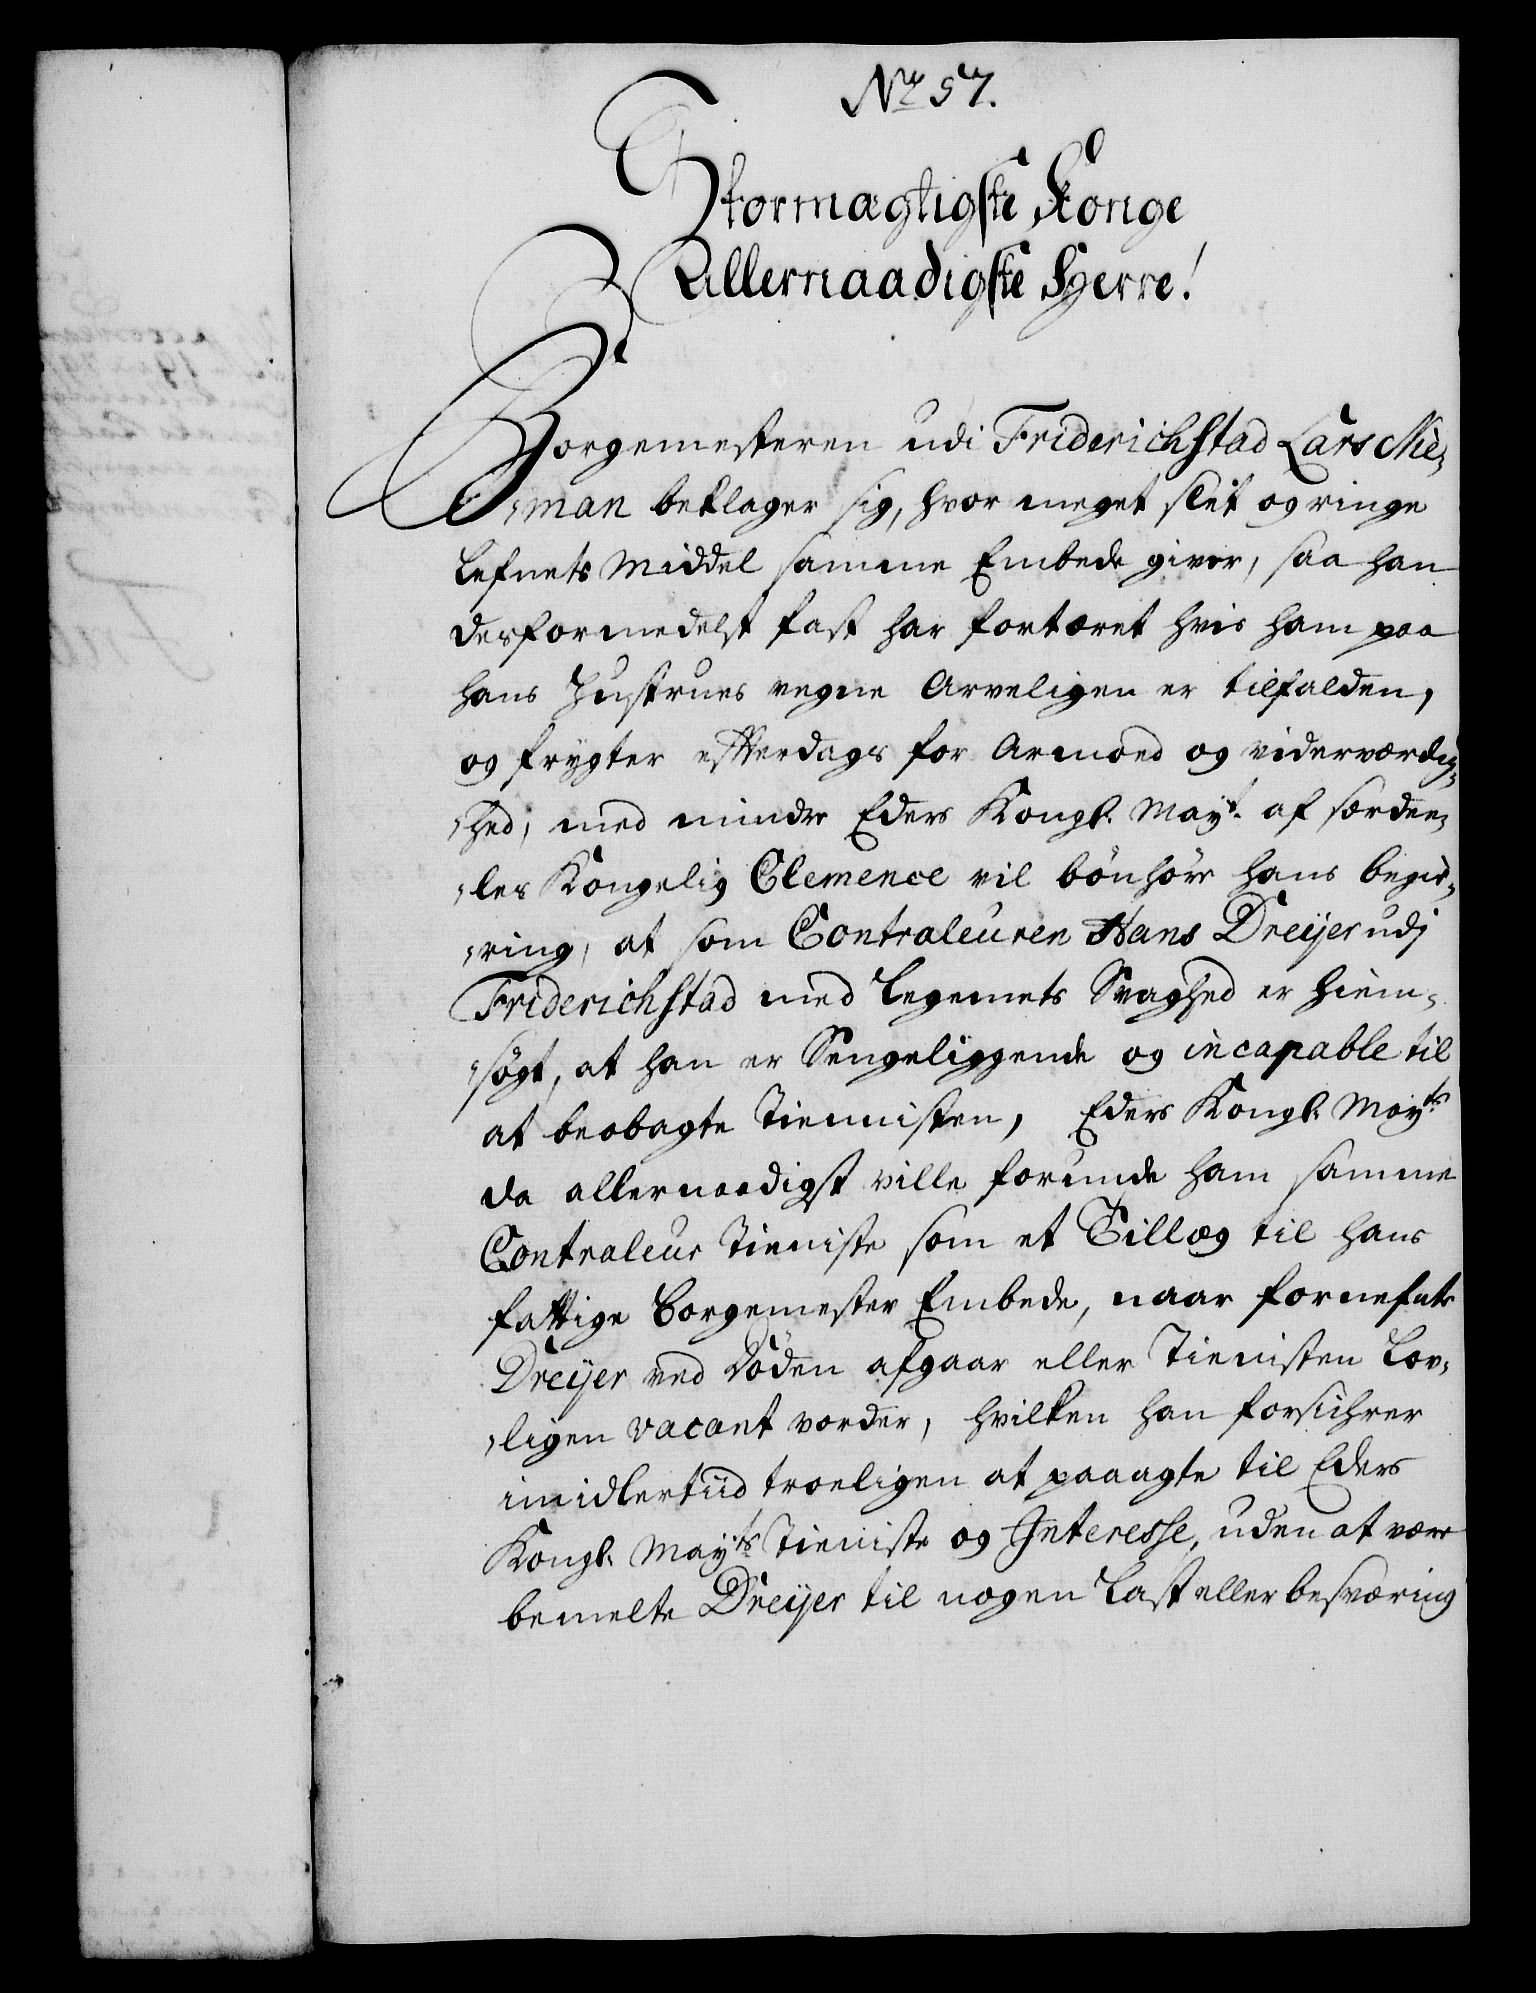 No 57.
Stormægtigste Konge
Allernaadigste Herre!
Borgemesteren udi Friderichstad Lars Nie,
,man beklager sig, hvor meget slet og ringe
Lefnets Middel samme Embede giver, saa han
derformedelst fast har fortæret hvis ham paa
hans Hustrues vegne Arveligen er tilfalden,
og frygter effterdags for Armoed og viderværdig,
,hed, med mindre Eders Kongl. Mayt. af særdee,
,les Kongelig Clemence vil bönhöre hans begie,
,ring, at som Contraleuren Hans Dreyer udj
Friderichstad med Legemets Svaghed er hiem,
,sögt, at han er Sengeliggende og incapable til
at beobagte Tiennisten, Eders Kongl. Mayts.
da allernaadigst ville forunde ham samme
Contraleur Tieniste som et Tillæg til hans
fattige Borgemester Embede, naar fornefnte
Dreyer ved Döden afgaar eller Tienisten Lov,
,ligen vacant vorder, hvilken han forsichrer
imidlertiid troeligen at paaagte til Eders
Kongl. Mayts Tieniste og Interesse, uden at være
bemelte Dreyer til nogen Last eller besværing